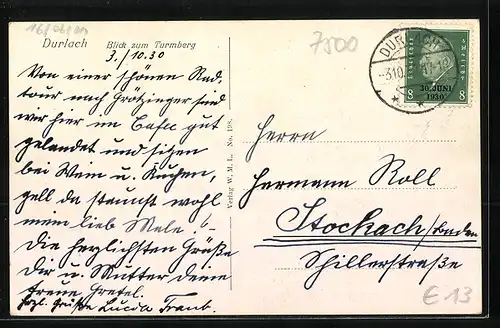 16/04/03
Durlach Blick zum Turmberg
3./10.30
Von einer schönen Rad-
tour nach Grötzingen sind
wir hier im Cafee gut
gelandet und sitzen
bei Wein u. Kuchen,
gell da staunst wohl
mein lieb Mele.
Die herzlichsten Grüße
Dir u. Mutter deine
treue Gretel.
Hzl. Grüße Lucda Traub.
Verlag W. M. L. No. 198.
7500
DURLACH
-3.10.
30. JUNI
1930
8 8
Herrn
Hermann Roll
Stockach/Baden
Schillerstraße
€ 13